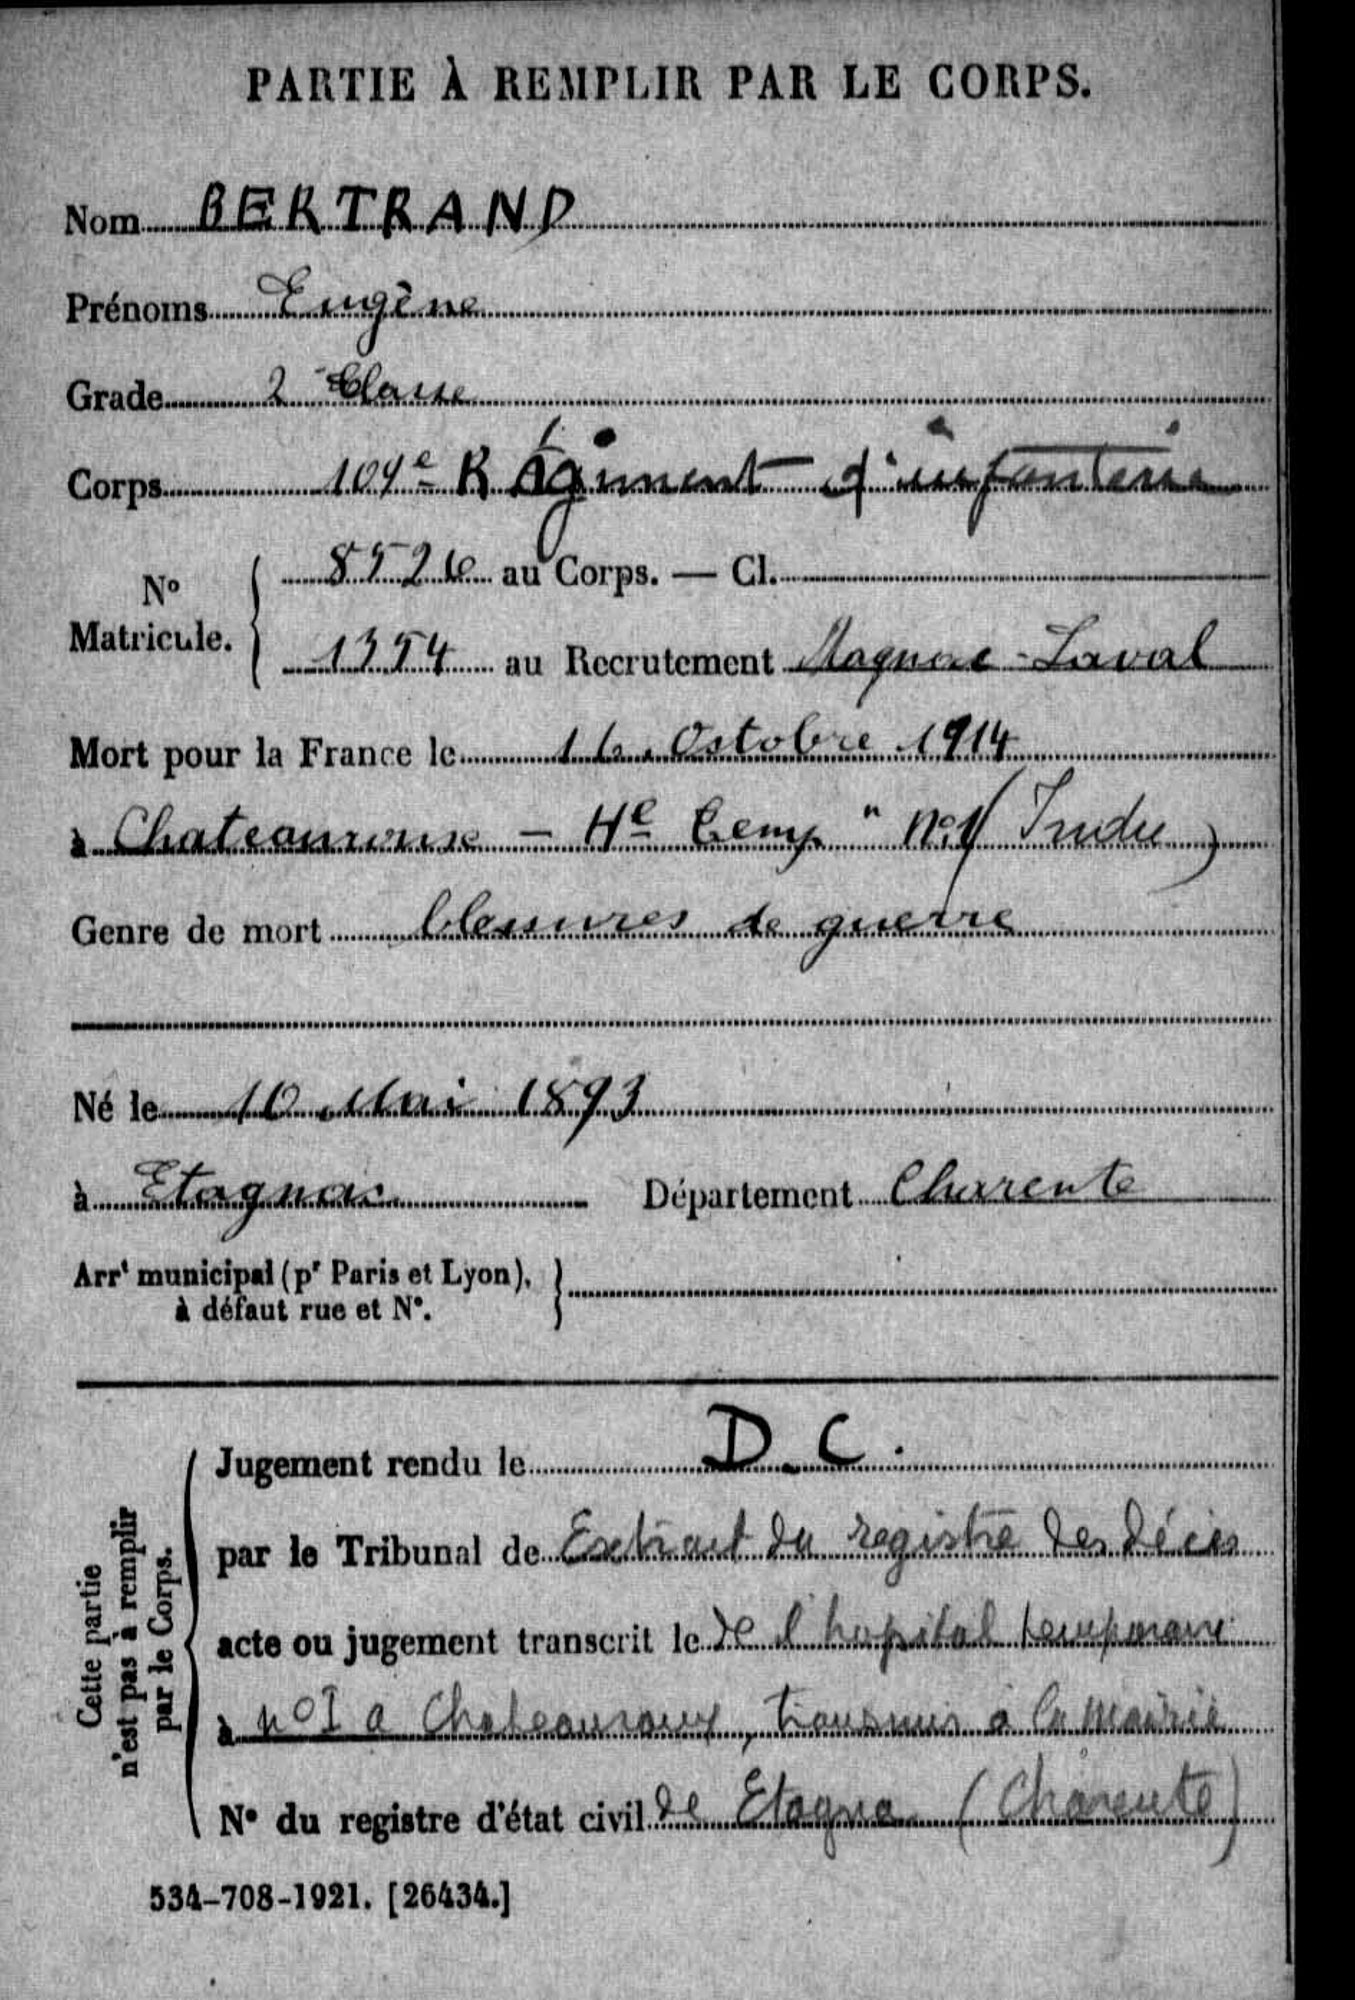 PARTIE À REMPLIR PAR LE CORPS.
Nom BERTRAND
Prénoms Eugène
Grade 2e Classe
Corps 104e Régiment d'infanterie
No Matricule. { 8526 au Corps. — Cl.
1354 au Recrutement Magnac-Laval
Mort pour la France le 16 Octobre 1914
à Chateauroux — He Temp n° 1 (Indre)
Genre de mort blessures de guerre
Né le 10 Mai 1893
à Etagnac Département Charente
Arrt municipal (pr Paris et Lyon), }
à défaut rue et N°.
Cette partie
n'est pas à remplir
par le Corps.
Jugement rendu le D.C.
par le Tribunal de Extrait du registre des décès
acte ou jugement transcrit le de l'hopital temporaire
à n° I a Chateauroux, transmis à la Mairie
N° du registre d'état civil de Etagna (Charente)
534-708-1921. [26434.]